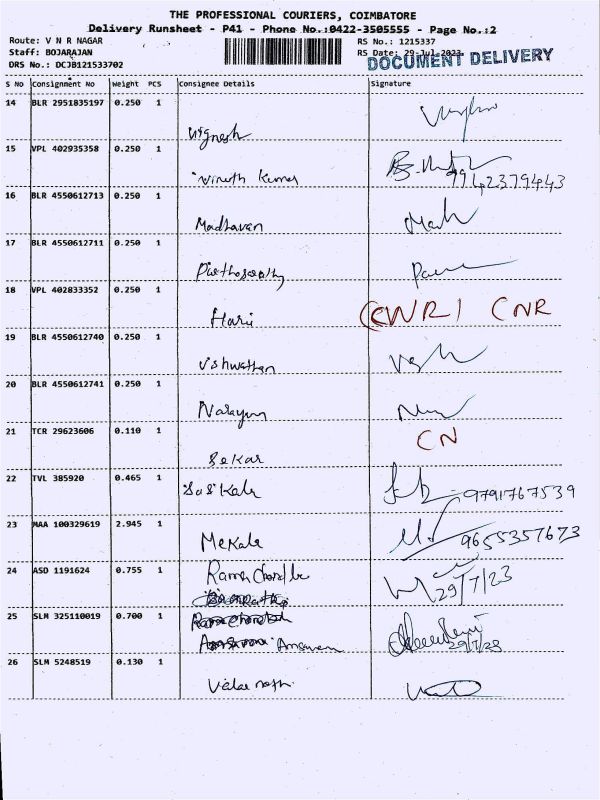 THE PROFESSIONAL COURIERS, COIMBATORE
Delivery Runsheet - P41 - Phone No.:0422-3505555 - Page No.:2
Route: V N R NAGAR RS No.: 1215337
Staff: BOJARAJAN RS Date: 29-Jul-2023
DRS No.: DCJB121533702 DOCUMENT DELIVERY
S No Consignment No Weight PCS Consignee Details Signature
14 BLR 2951835197 0.250 1
Vignesh
15 VPL 402935358 0.250 1
Vinoth Kumar 9942379443
16 BLR 4550612713 0.250 1
Madhavan
17 BLR 4550612711 0.250 1
Parthasarathy
18 VPL 402833352 0.250 1
Hari CNR
19 BLR 4550612740 0.250 1
20 BLR 4550612741 0.250 1
Narayan
21 TCR 29623606 0.110 1 CN
Sekar
22 TVL 385920 0.465 1
Sasikala 9791767539
23 MAA 100329619 2.945 1
Mekala 9655357673
24 ASD 1191624 0.755 1
29/7/23
25 SLM 325110019 0.700 1
29/7/23
26 SLM 5248519 0.130 1